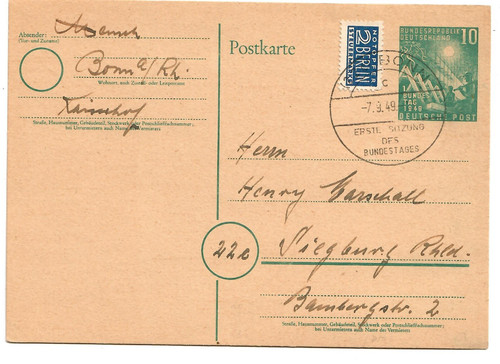 Absender:
(Vor- und Zuname)
Bonn a/Rh.
Wohnort, auch Zustell- oder Leitpostamt
Straße, Hausnummer, Gebäudeteil, Stockwerk oder Postschließfachnummer,
bei Untermietern auch Name des Vermieters
Postkarte
2 BERLIN
NOTOPFER
STEUERMARKE
BUNDESREPUBLIK
DEUTSCHLAND
10
BUNDES
TAG
1949
DEUTSCHE POST
BONN
c
-7.9.49
ERSTE SITZUNG
DES
BUNDESTAGES
Herrn
Henry Marschall
22c
Siegburg Rhld.
Bambergstr. 2
Straße, Hausnummer, Gebäudeteil, Stockwerk oder Postschließfachnummer,
bei Untermietern auch Name des Vermieters